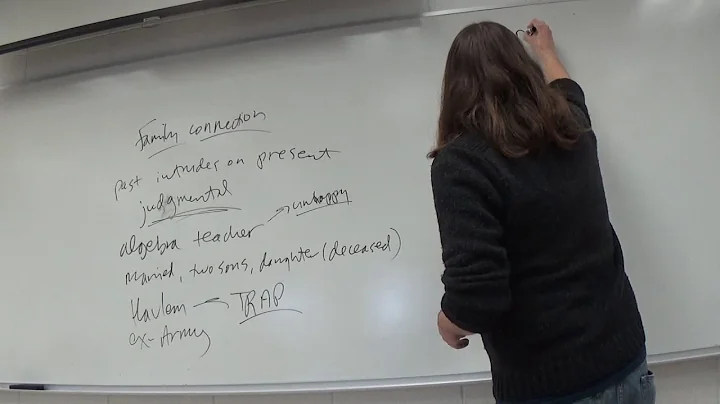 family connection
past intrudes on present
judgmental
algebra teacher → unhappy
married, two sons, daughter (deceased)
Harlem — TRAP
ex-Army